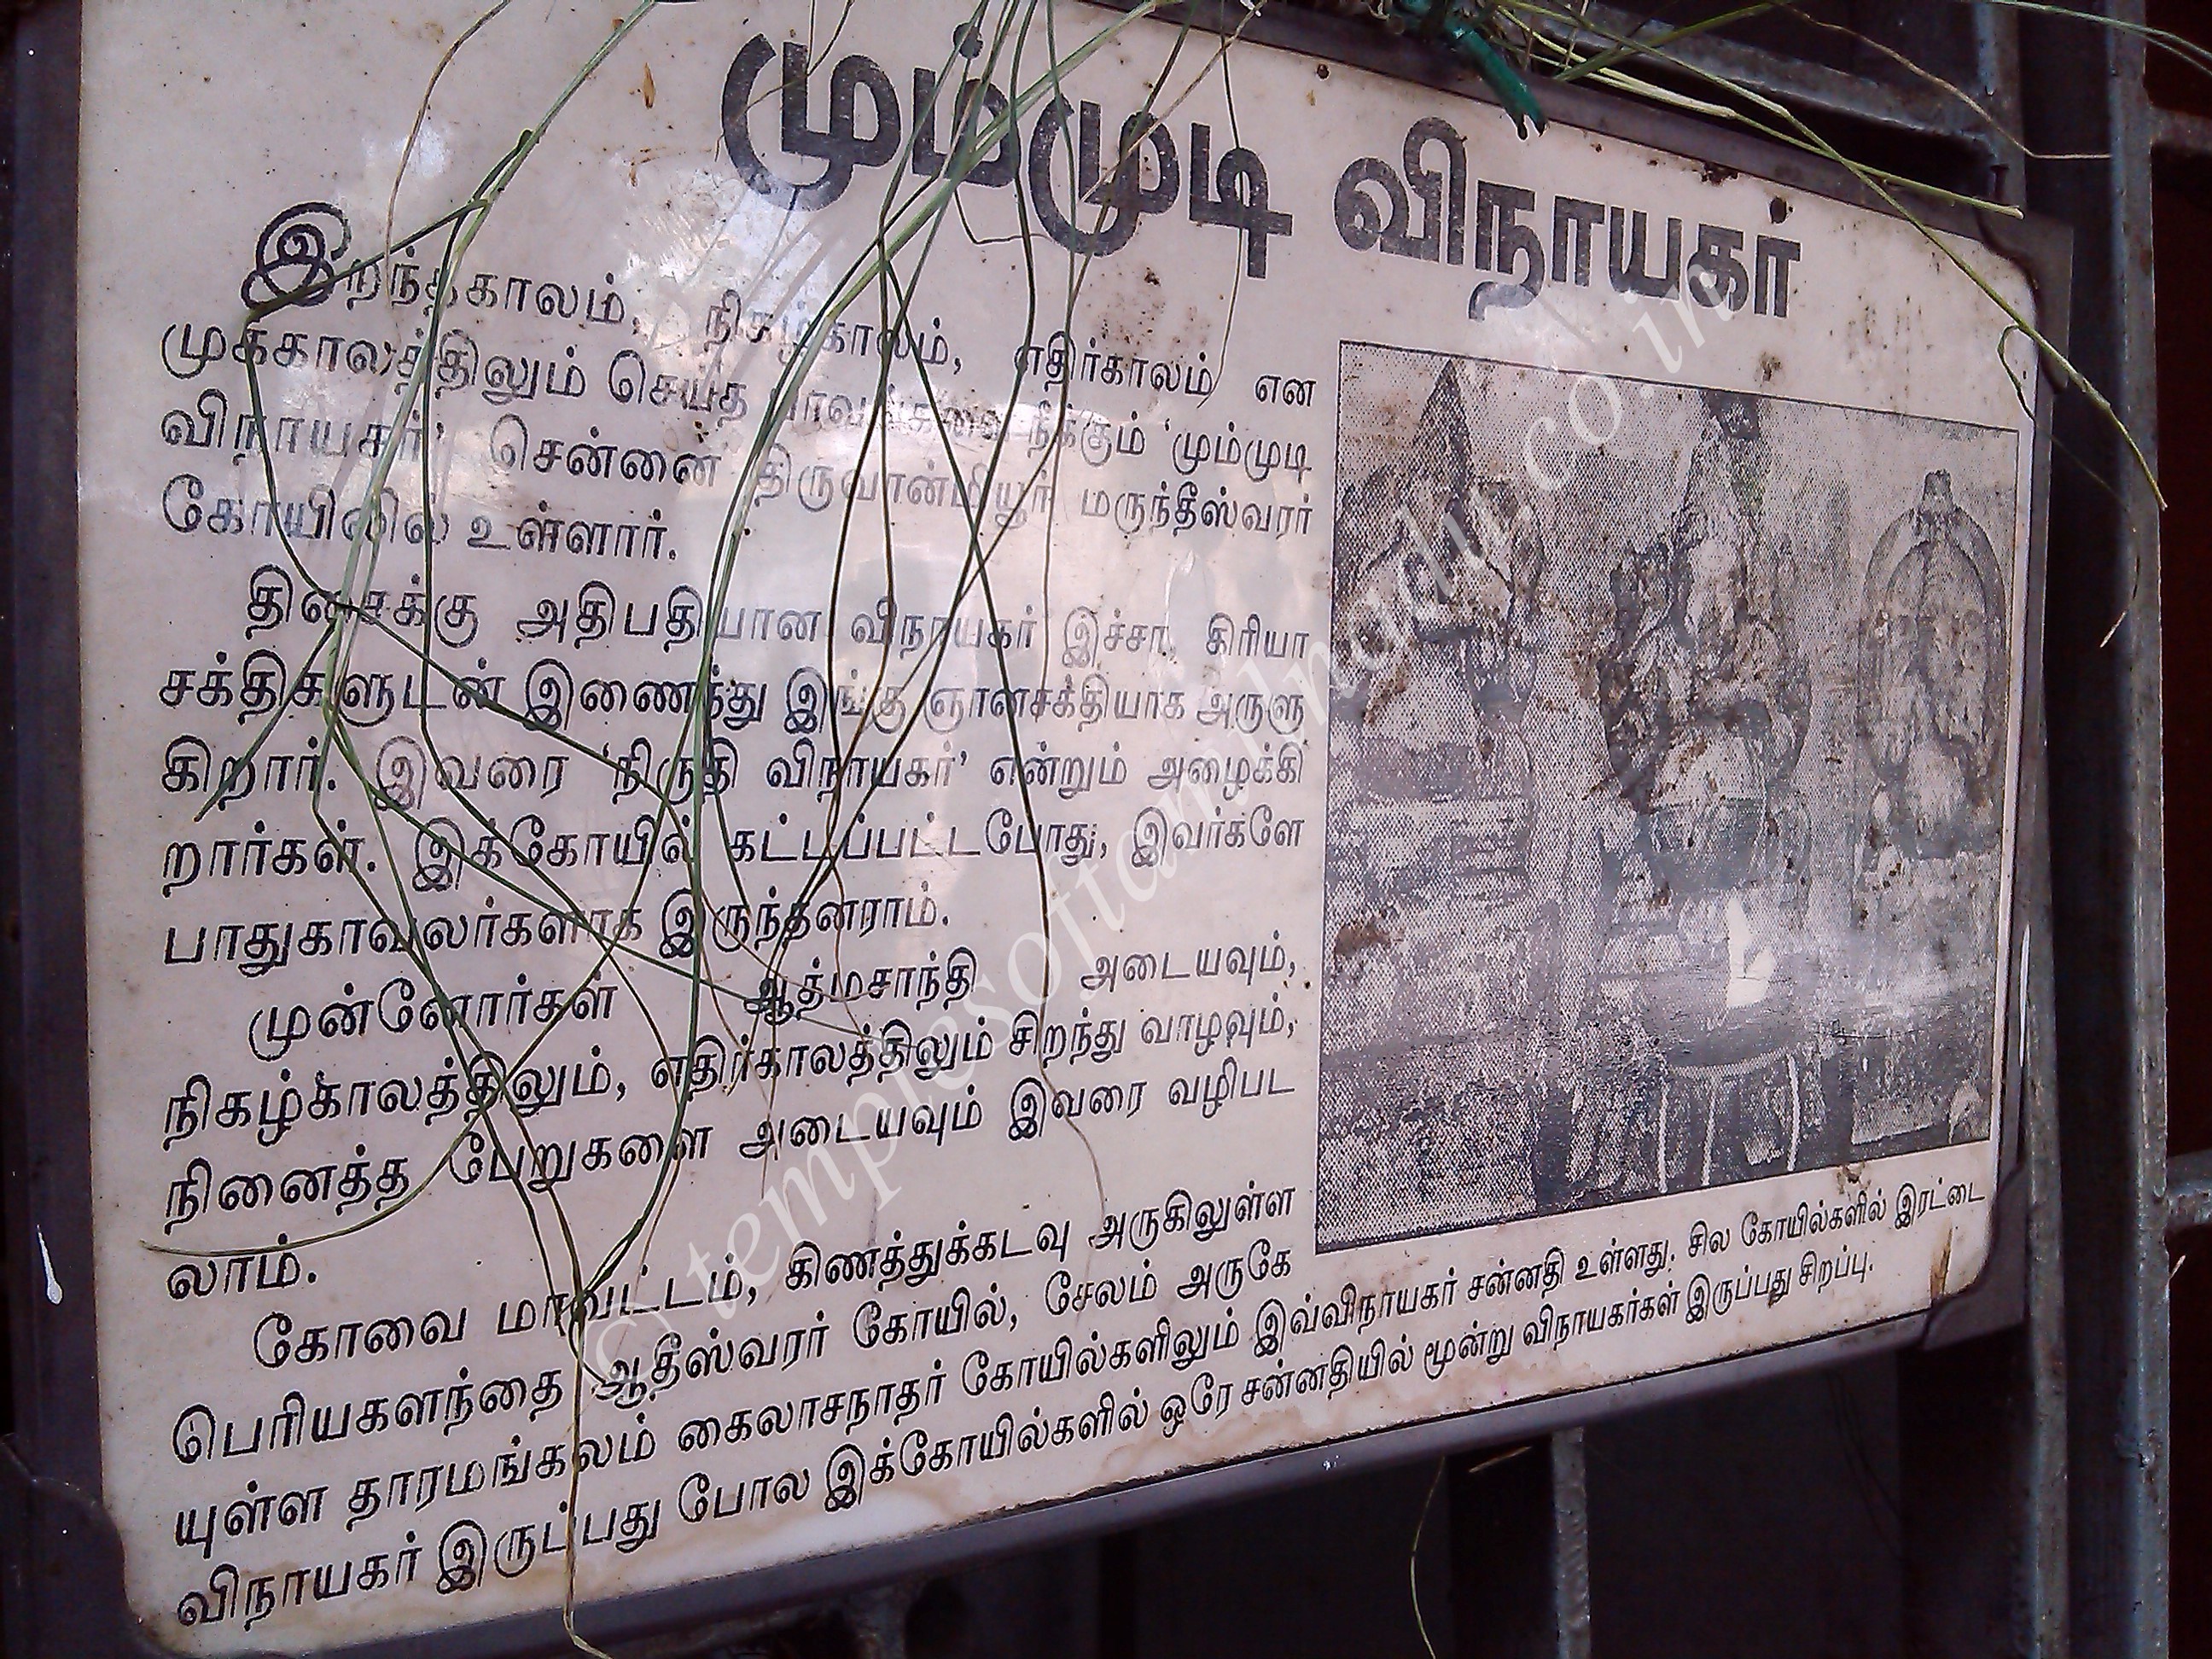 மும்முடி விநாயகர்
இறந்தகாலம், நிகழ்காலம், எதிர்காலம் என
முக்காலத்திலும் செய்த நீக்கும் 'மும்முடி
விநாயகர்' சென்னை திருவான்மியூர் மருந்தீஸ்வரர்
கோயிலில் உள்ளார்.
திசைக்கு அதிபதியான விநாயகர் இச்சா, கிரியா
சக்திகளுடன் இணைந்து இங்கு ஞானசக்தியாக அருளு
கிறார். இவரை 'நிருதி விநாயகர்' என்றும் அழைக்கி
றார்கள். இக்கோயில் கட்டப்பட்டபோது, இவர்களே
பாதுகாவலர்களாக இருந்தனராம்.
முன்னோர்கள் ஆத்மசாந்தி அடையவும்,
நிகழ்காலத்திலும், எதிர்காலத்திலும் சிறந்து வாழவும்,
நினைத்த பேறுகளை அடையவும் இவரை வழிபட
லாம்.
கோவை மாவட்டம், கிணத்துக்கடவு அருகிலுள்ள
பெரியகளந்தை ஆதீஸ்வரர் கோயில், சேலம் அருகே
யுள்ள தாரமங்கலம் கைலாசநாதர் கோயில்களிலும் இவ்விநாயகர் சன்னதி உள்ளது. சில கோயில்களில் இரட்டை
விநாயகர் இருப்பது போல இக்கோயில்களில் ஒரே சன்னதியில் மூன்று விநாயகர்கள் இருப்பது சிறப்பு.
© templesoftamilnadu.co.in